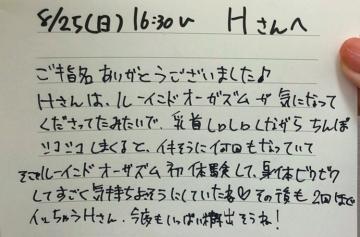 8/25(日) 16:30〜 Hさんへ
ご指名ありがとうございました♪
Hさんは、ルーインドオーガズムが気になって
くださってたみたいで、乳首しながらちんぽ
シコシコしまくると、イキそうに何回もなっていて
そこでルーインドオーガズム初体験して、身体ビクビク
してすごく気持ちよさそうにしていたね♡その後も2回ほど
イッちゃうHさん、今度もいっぱい精出そうね!